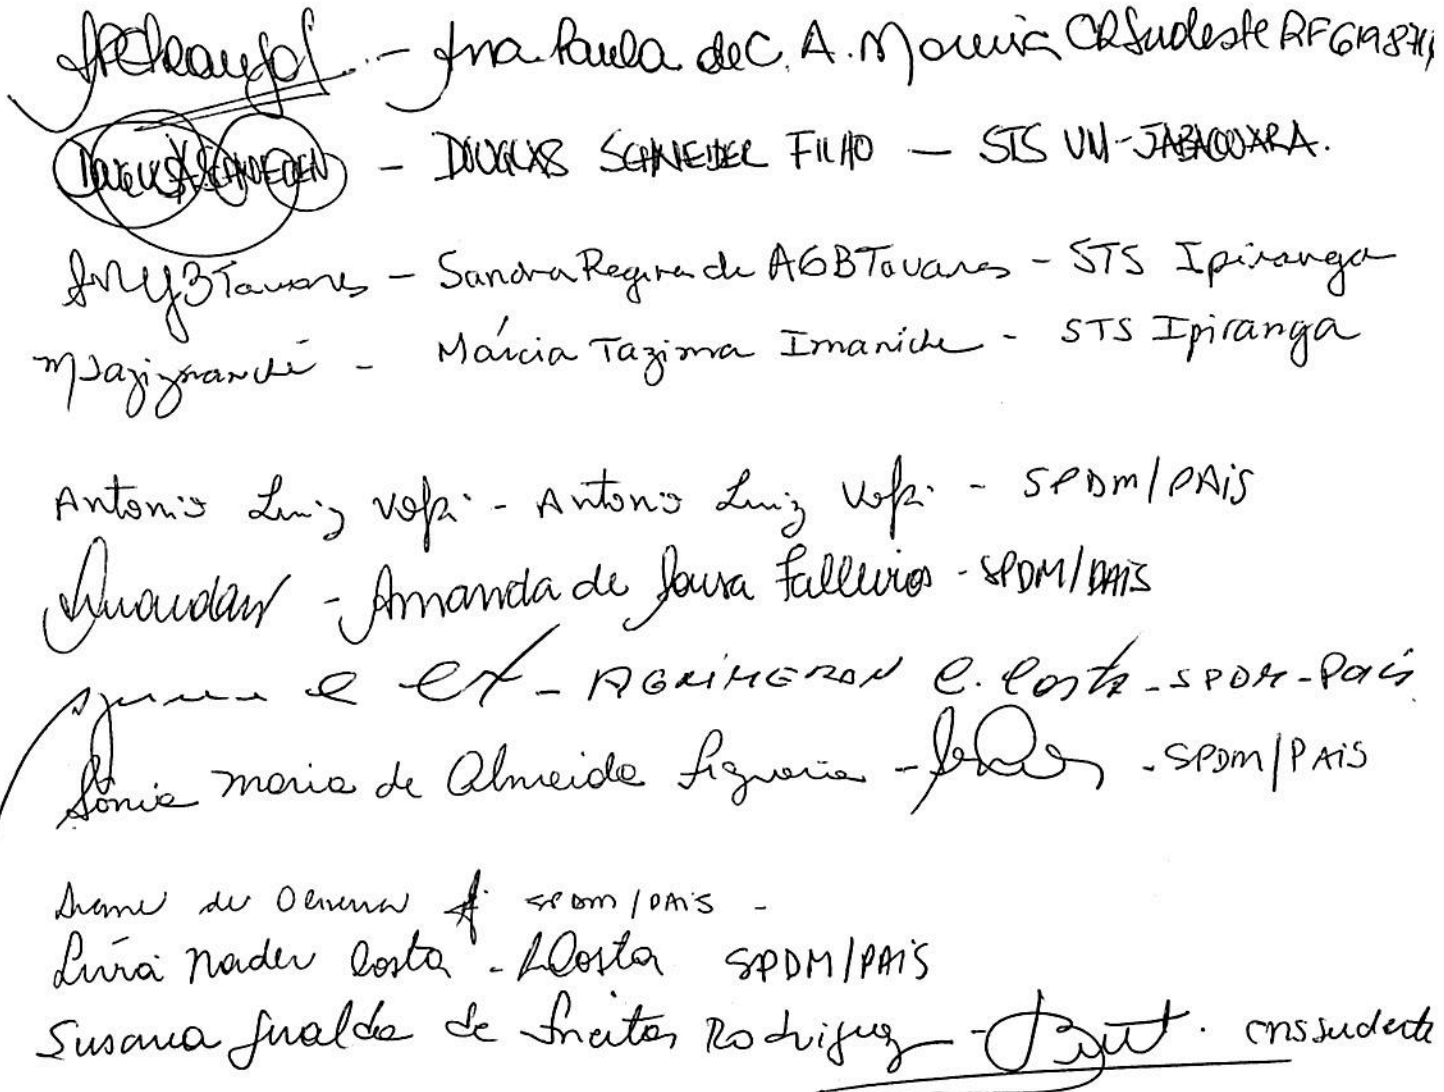 - Ana Paula de C. A. Moreira CRSudeste RF 619871
DOUGLAS SCHNEIDER - DOUGLAS SCHNEIDER FILHO - STS VM-JABAQUARA.
Tavares - Sandra Regina de AGBTavares - STS Ipiranga
- Márcia Tazima Imaniche - STS Ipiranga
Antonio Luiz Volpi - Antonio Luiz Volpi - SPDM/PAIS
Amanda - Amanda de Sousa Falleiros - SPDM/PAIS
- AGRIMERON C. Costa - SPDM - Pais
Sônia Maria de Almeida Figueira - - SPDM/PAIS
de Oliveira SPDM/PAIS -
Livia Nader Costa - LCosta SPDM/PAIS
Susana de Freitas Rodrigues - . CRSSudeste